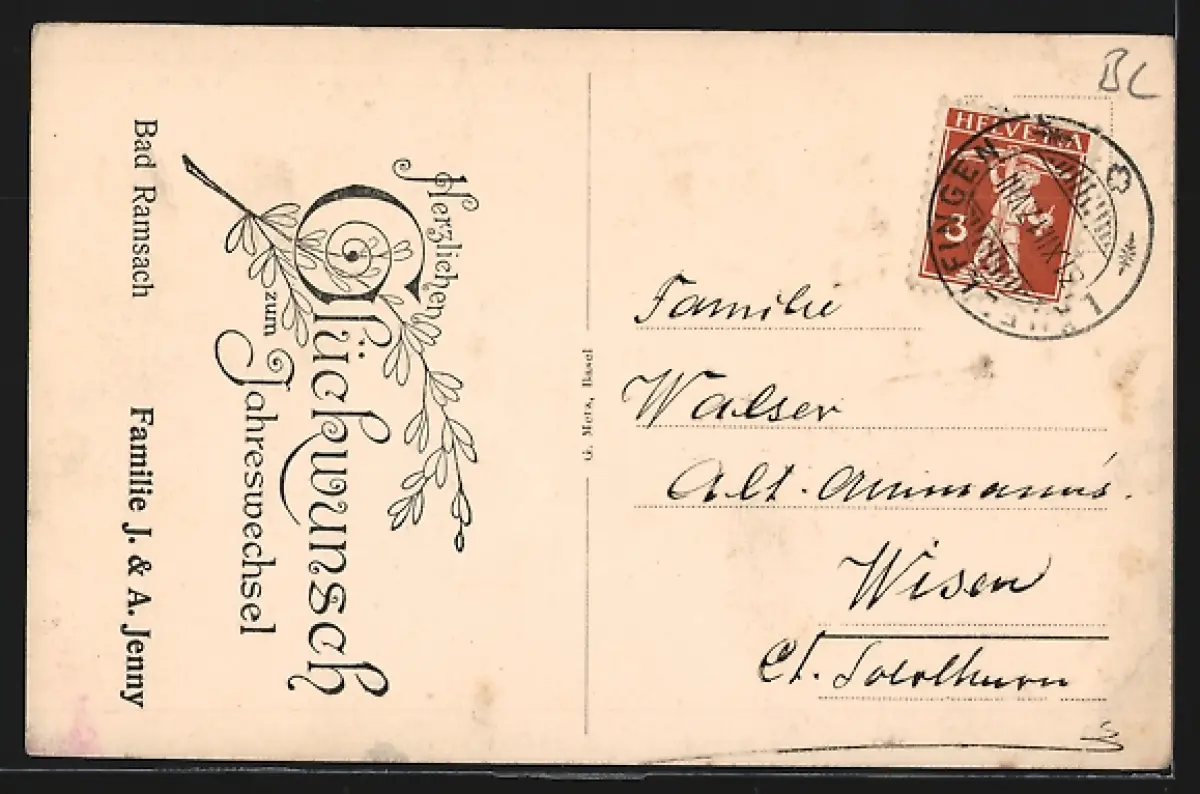 Herzlichen
Glückwunsch
zum
Jahreswechsel
Bad Ramsach Familie J. & A. Jenny
G. Metz, Basel
BL
HELVETIA
3
Familie
Walser
Alt. Ammanns.
Wisen
Ct. Solothurn